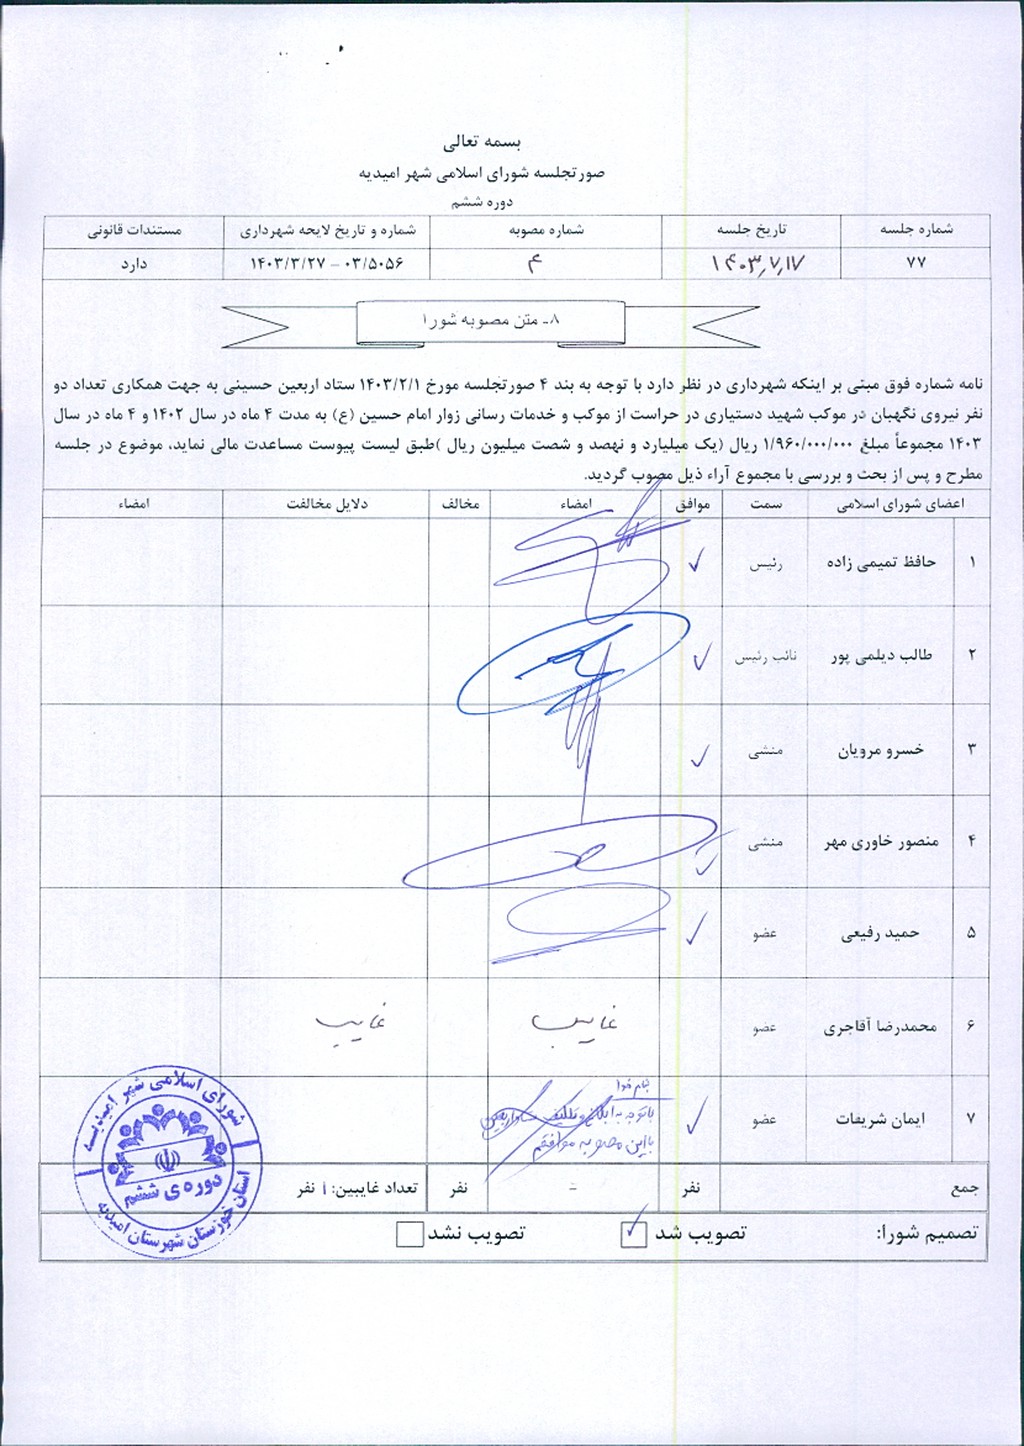 بسمه تعالی
صورتجلسه شورای اسلامی شهر امیدیه
دوره ششم
شماره جلسه تاریخ جلسه شماره مصوبه شماره و تاریخ لایحه شهرداری مستندات قانونی
۷۷ ۱۴۰۳٫۷٫۱۷ ۴ ۰۳/۵۰۵۶ – ۱۴۰۳/۳/۲۷ دارد
۸- متن مصوبه شورا
نامه شماره فوق مبنی بر اینکه شهرداری در نظر دارد با توجه به بند ۴ صورتجلسه مورخ ۱۴۰۳/۲/۱ ستاد اربعین حسینی به جهت همکاری تعداد دو
نفر نیروی نگهبان در موکب شهید دستیاری در حراست از موکب و خدمات رسانی زوار امام حسین (ع) به مدت ۴ ماه در سال ۱۴۰۲ و ۴ ماه در سال
۱۴۰۳ مجموعاً مبلغ ۱/۹۶۰/۰۰۰/۰۰۰ ریال (یک میلیارد و نهصد و شصت میلیون ریال )طبق لیست پیوست مساعدت مالی نماید، موضوع در جلسه
مطرح و پس از بحث و بررسی با مجموع آراء ذیل مصوب گردید.
اعضای شورای اسلامی سمت موافق امضاء مخالف دلایل مخالفت امضاء
۱ حافظ تمیمی زاده رئیس ✓
۲ طالب دیلمی پور نائب رئیس ✓
۳ خسرو مرویان منشی ✓
۴ منصور خاوری مهر منشی ✓
۵ حمید رفیعی عضو ✓
۶ محمدرضا آقاجری عضو غایب غایب
بنام خدا
۷ ایمان شریفات عضو ✓ با توجه به
با این مصوبه موافقم
جمع نفر - نفر تعداد غایبین: ۱ نفر
تصمیم شورا: تصویب شد ✓ تصویب نشد
شورای اسلامی شهر امیدیه
دوره ی ششم
استان خوزستان شهرستان امیدیه